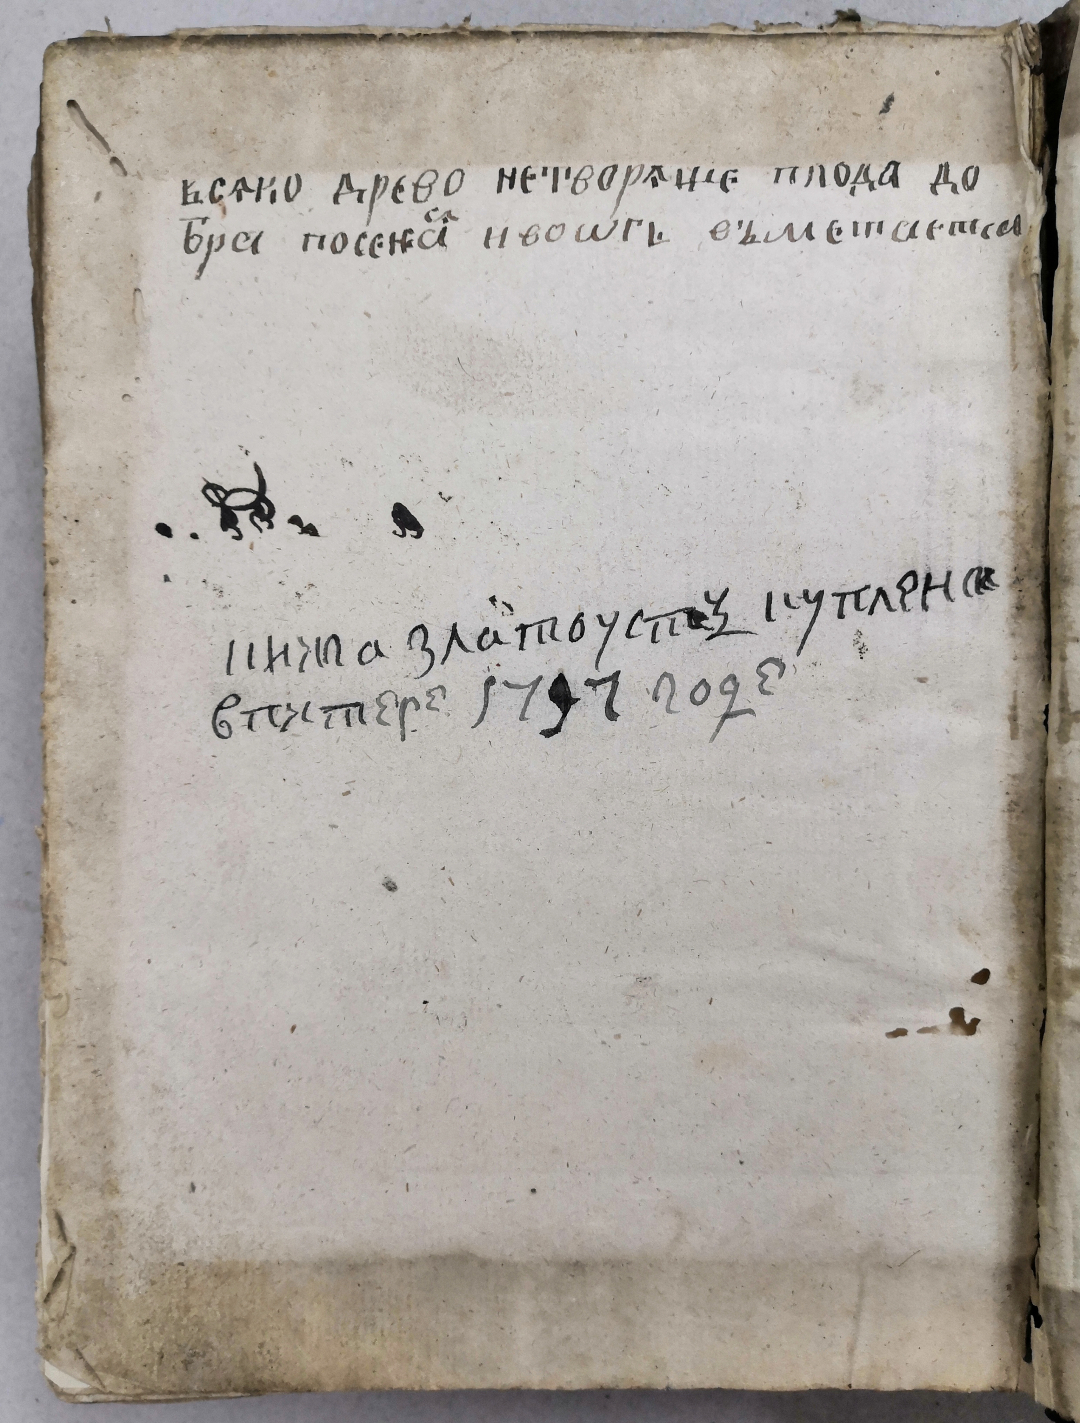 всѧко древо нетворѧще плода до
бра посекаѧ и воѡгнь въметается
книга златоустъ куплена
впитере 1797 годе